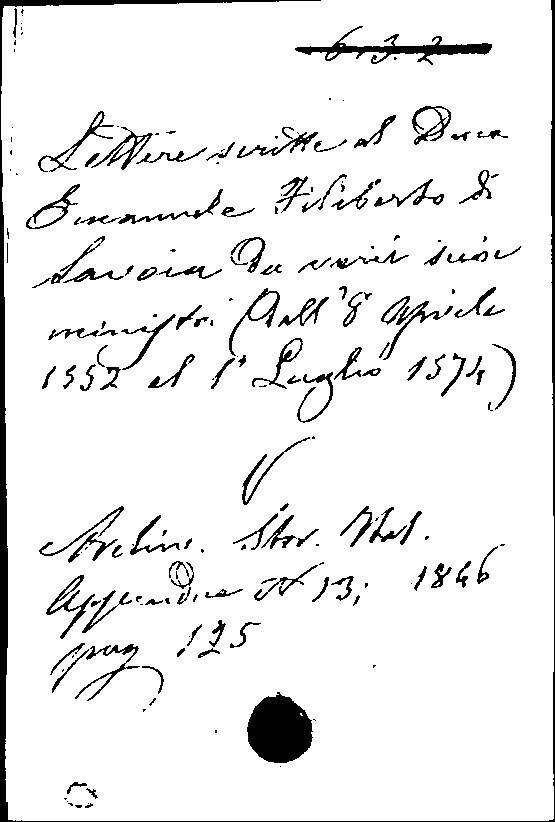 6.3.2
Lettere scritte al Duca
Emanuele Filiberto di
Savoia da varii suoi
ministri (dall'8 Aprile
1552 al 1° Luglio 1574)
V
Archivio Stor. Ital.
Appendice N 13; 1846
pag 125